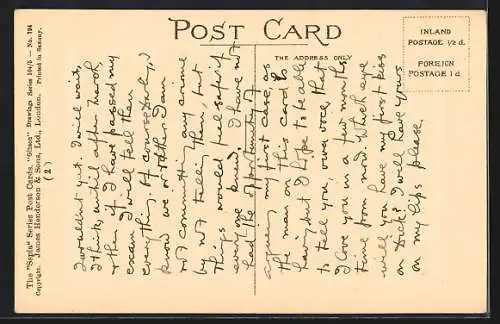 POST CARD
THE ADDRESS ONLY
INLAND
POSTAGE ½ d.
FOREIGN
POSTAGE 1 d.
The "Sepia" Series Post Cards. "Gibson" Drawings Series 104/5 — No. 794
Copyright. James Henderson & Sons, Ltd., London. Printed in Saxony.
(2)
I wouldn't yet. I will wait,
I think, until after March,
& then if I have passed my
exam I will tell them
everything. Of course darling, I
know we or rather I am
not committing any crime
by not telling them, but
things would feel safer if
everyone knew. I have not
had the opportunity of
arguing my first case, as
the man on this card is
having but I hope to be able
to tell you, own voce, that
I love you in a few months
time from now. Which eye
will you have my first kiss
on Dick? I will have yours
on my lips please.